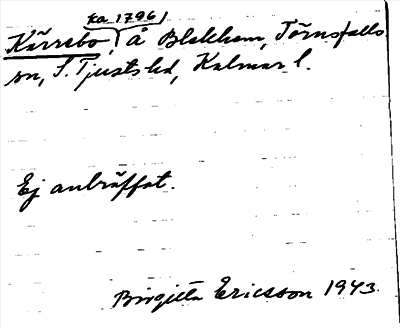 ka 1796
Kärrebo, å Blekhem, Törnsfalls
sn, S. Tjusts hd, Kalmar l.
Ej anträffat.
Birgitta Ericsson 1943.